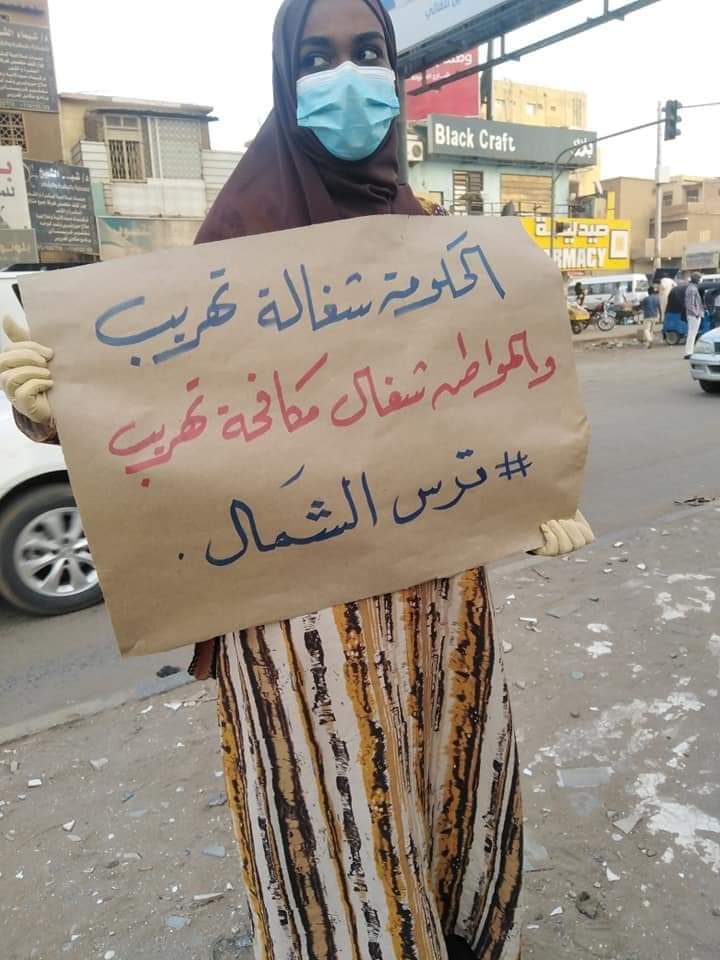 الحكومة شغالة تهريب
والمواطن شغال مكافحة تهريب
#ترس الشمال.
Black Craft
صيدلية
ARMACY